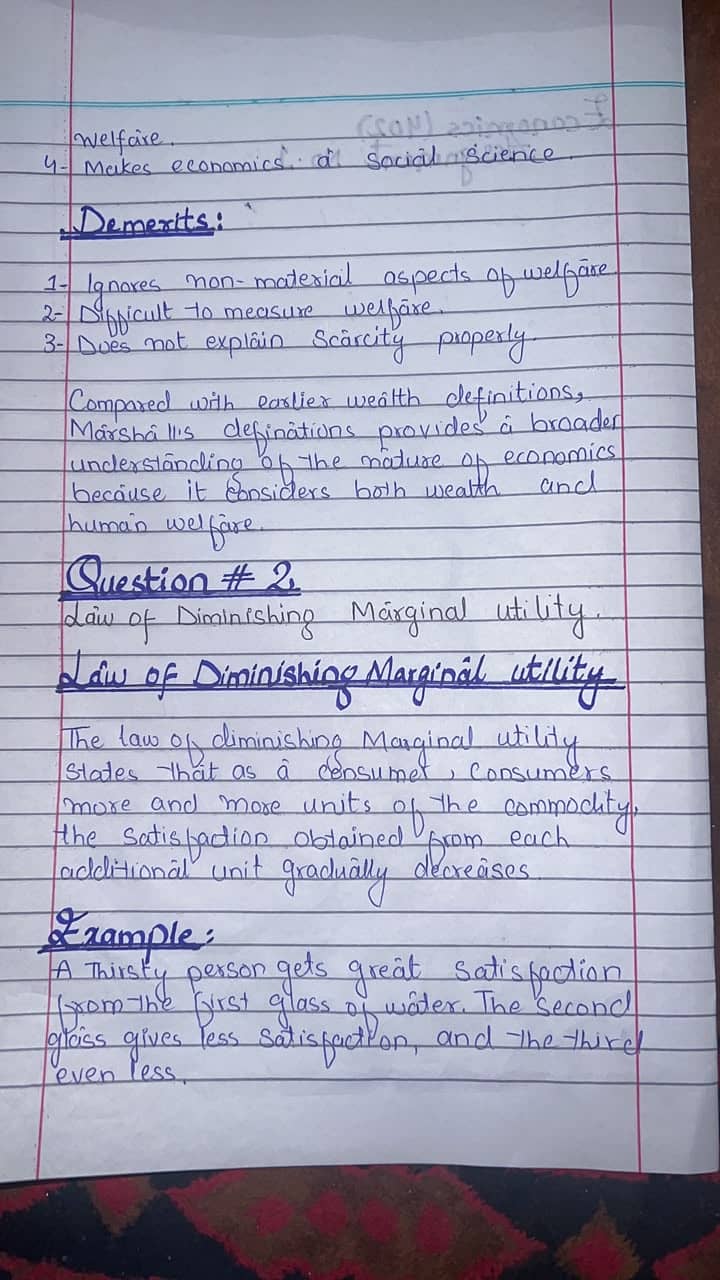 welfare.
4- Makes economics a Social Science.
Demerits:
1- Ignores non-material aspects of welfare.
2- Difficult to measure welfare.
3- Does not explain Scarcity properly.
Compared with earlier wealth definitions,
Marshall's definations provides a broader
understanding of the nature of economics
because it considers both wealth and
human welfare.
Question # 2.
Law of Diminishing Marginal utility.
Law of Diminishing Marginal utility
The law of diminishing Marginal utility
States that as a consumer, consumers
more and more units of the commodity,
the Satisfaction obtained from each
additional unit gradually decreases.
Example:
A Thirsty person gets great satisfaction
from the first glass of water. The Second
glass gives less Satisfaction, and the third
even less.